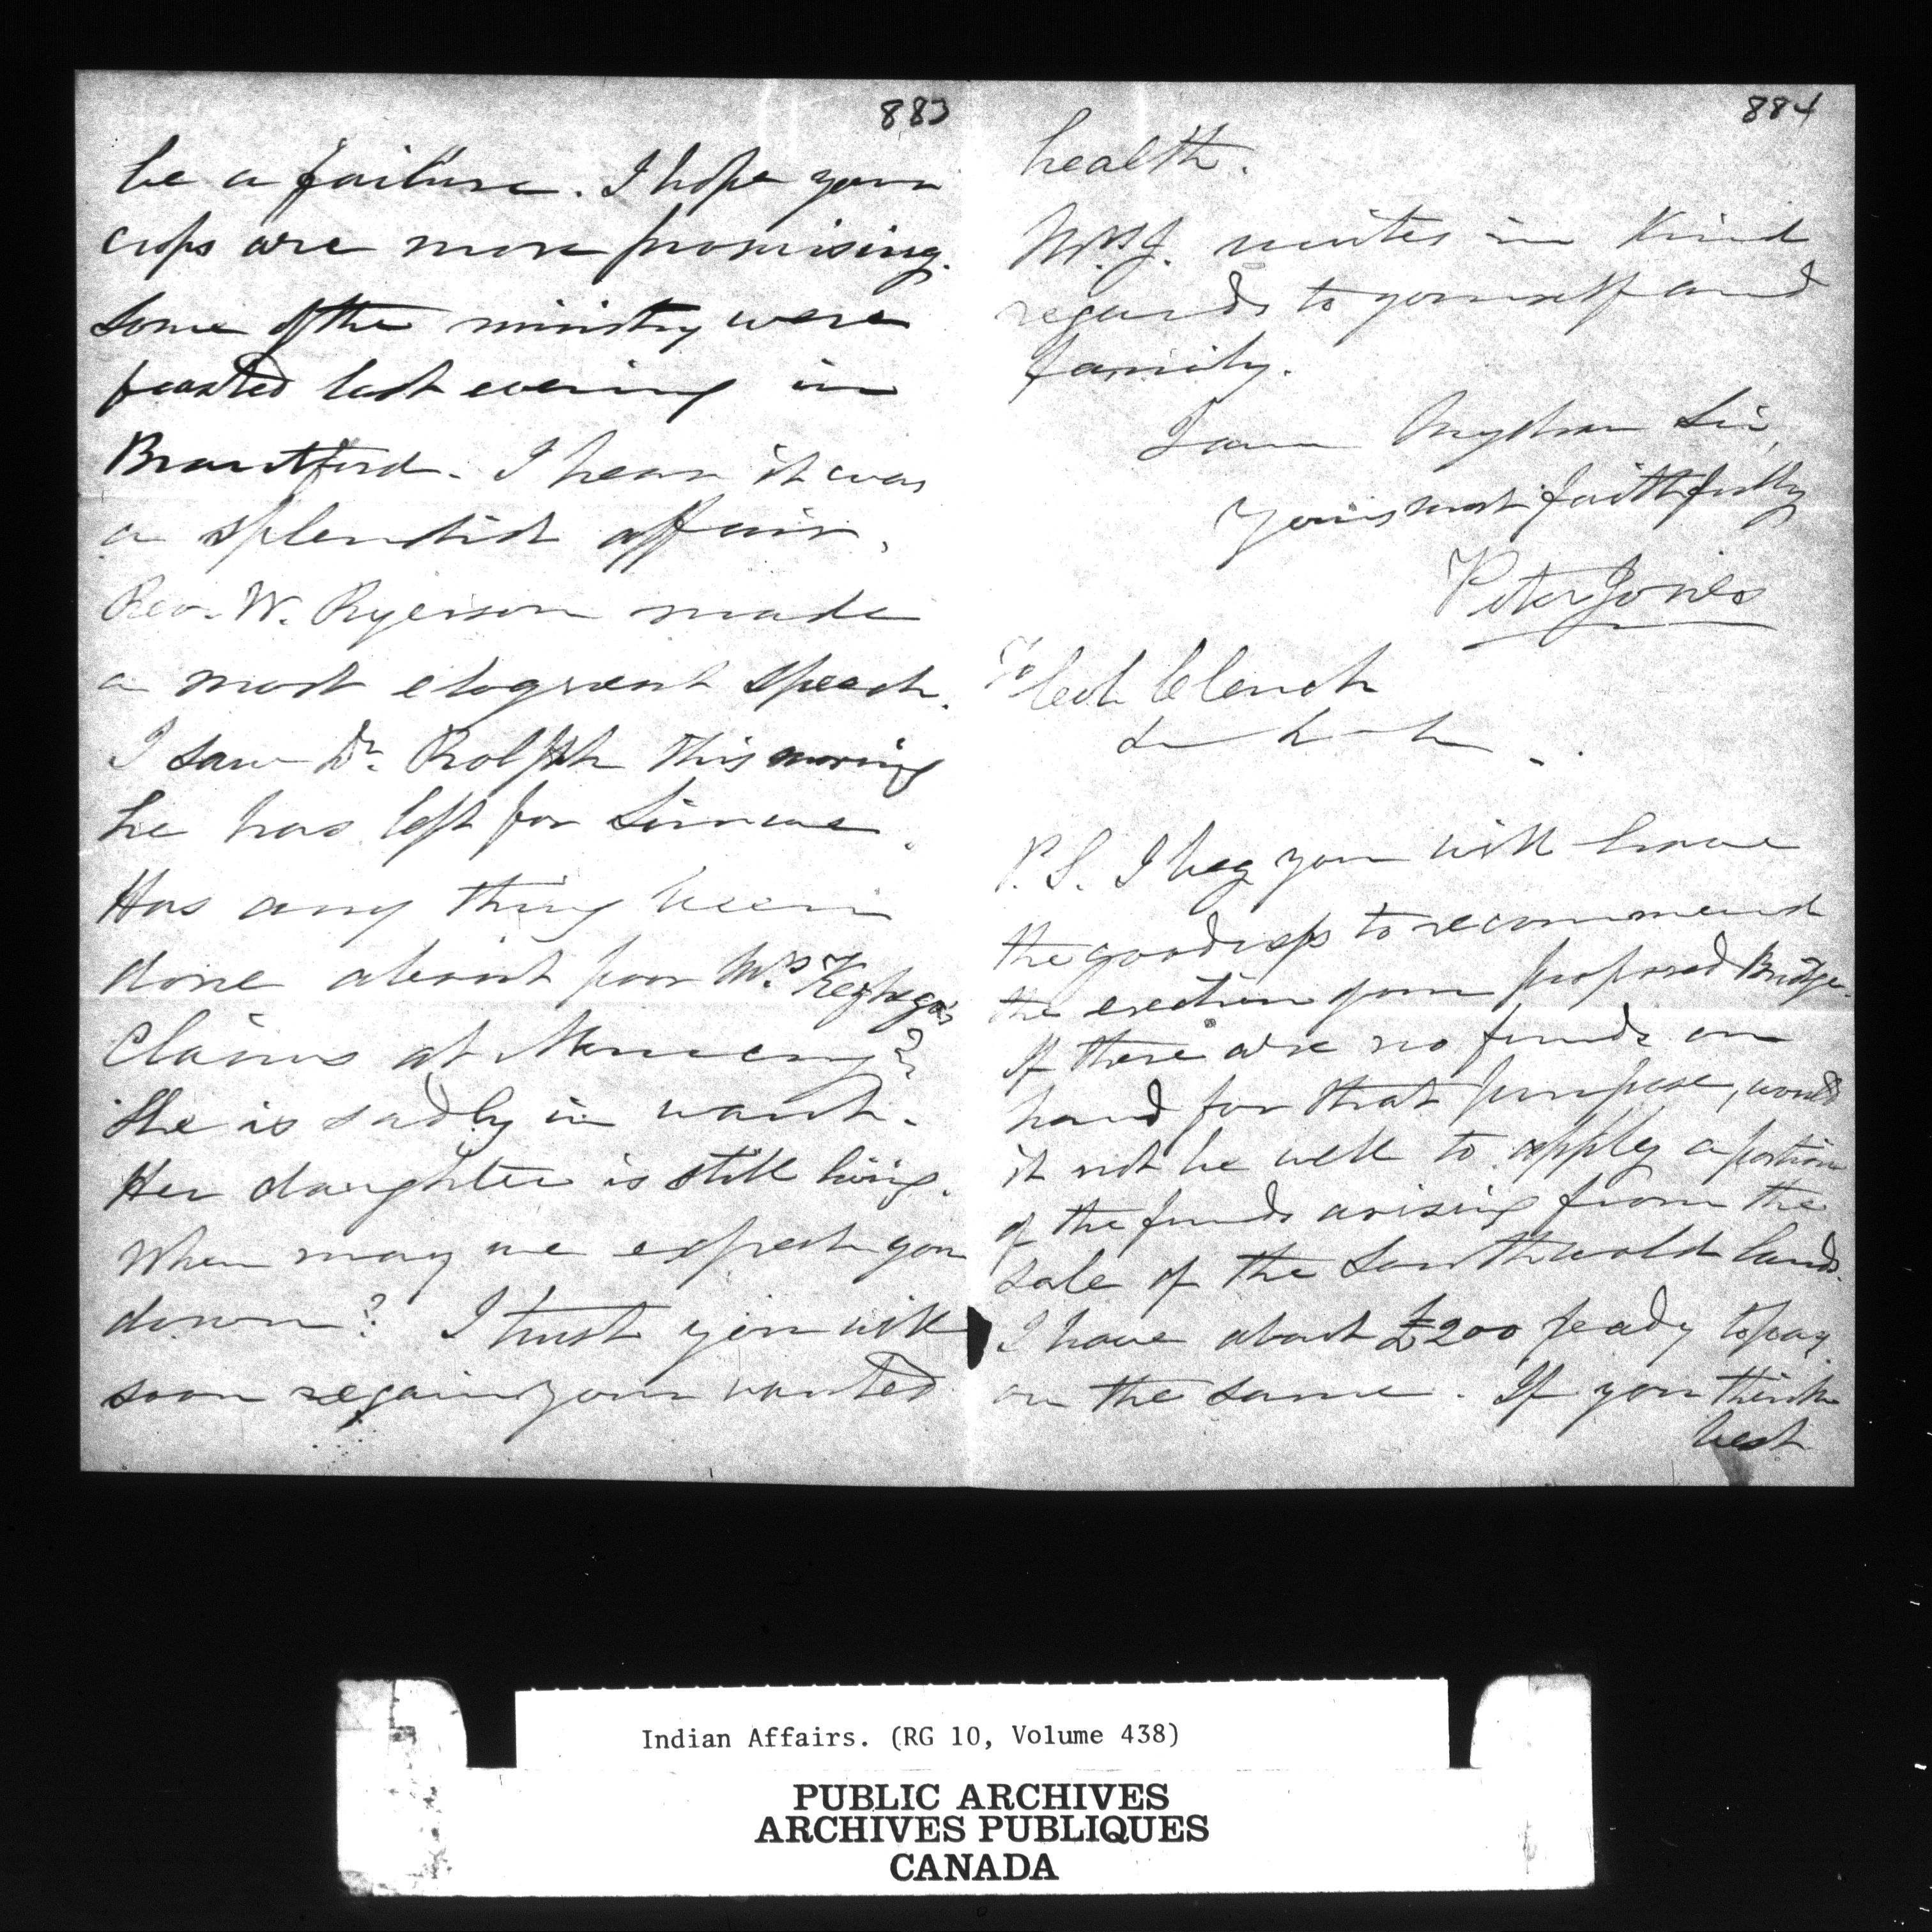 883
be a failure. I hope your
crops are more promising.
Some of the ministry were
feasted last evening in
Brantford. I hear it was
a splendid affair.
Rev. W. Ryerson made
a most eloquent speech.
I saw Dr. Rolph this morning
he has left for Simcoe.
Has any thing been
done about poor Mrs
Claims at Muncey?
She is sadly in want.
Her daughter is still living.
When may we expect you
down? I trust you will
soon regain your wonted
884
health.
Mrs J. unites in Kind
regards to yourself and
family.
I am My dear Sir,
Yours most faithfully
Peter Jones
To Col. Clench
P.S. I beg you will have
the goodness to recommend
the erection your proposed Bridge.
If there are no funds on
hand for that purpose, would
it not be well to apply a portion
of the funds arising from the
sale of the Southwold lands.
I have about £200 ready to pay
on the same. If you think
best
Indian Affairs. (RG 10, Volume 438)
PUBLIC ARCHIVES
ARCHIVES PUBLIQUES
CANADA